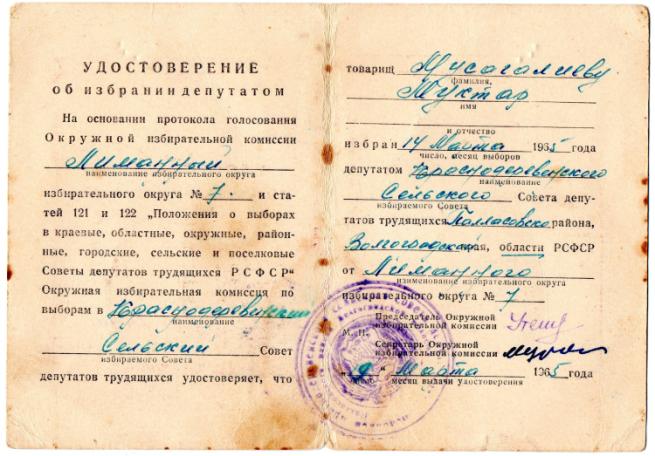 УДОСТОВЕРЕНИЕ
об избрании депутатом
На основании протокола голосования
Окружной избирательной комиссии
Лиманный
наименование избирательного округа
избирательного округа № 7. и ста-
тей 121 и 122 „Положения о выборах
в краевые, областные, окружные, район-
ные, городские, сельские и поселковые
Советы депутатов трудящихся РСФСР"
Окружная избирательная комиссия по
выборам в Краснодеревенский
наименование
Сельский Совет
избираемого Совета
депутатов трудящихся удостоверяет, что
товарищ Мусагалиеву
фамилия,
Муктар
имя
и отчество
избран 14 Марта 1965 года
число, месяц выборов
депутатом Краснодеревенского
наименование
Сельского Совета депу-
избираемого Совета
татов трудящихся Палласовско района,
Волгоградская, области РСФСР
от Лиманного
наименование избирательного округа
избирательного округа № 7
Председатель Окружной
избирательной комиссии
М. П.
Секретарь Окружной
избирательной комиссии
Марта 1965 года
число, месяц выдачи удостоверения